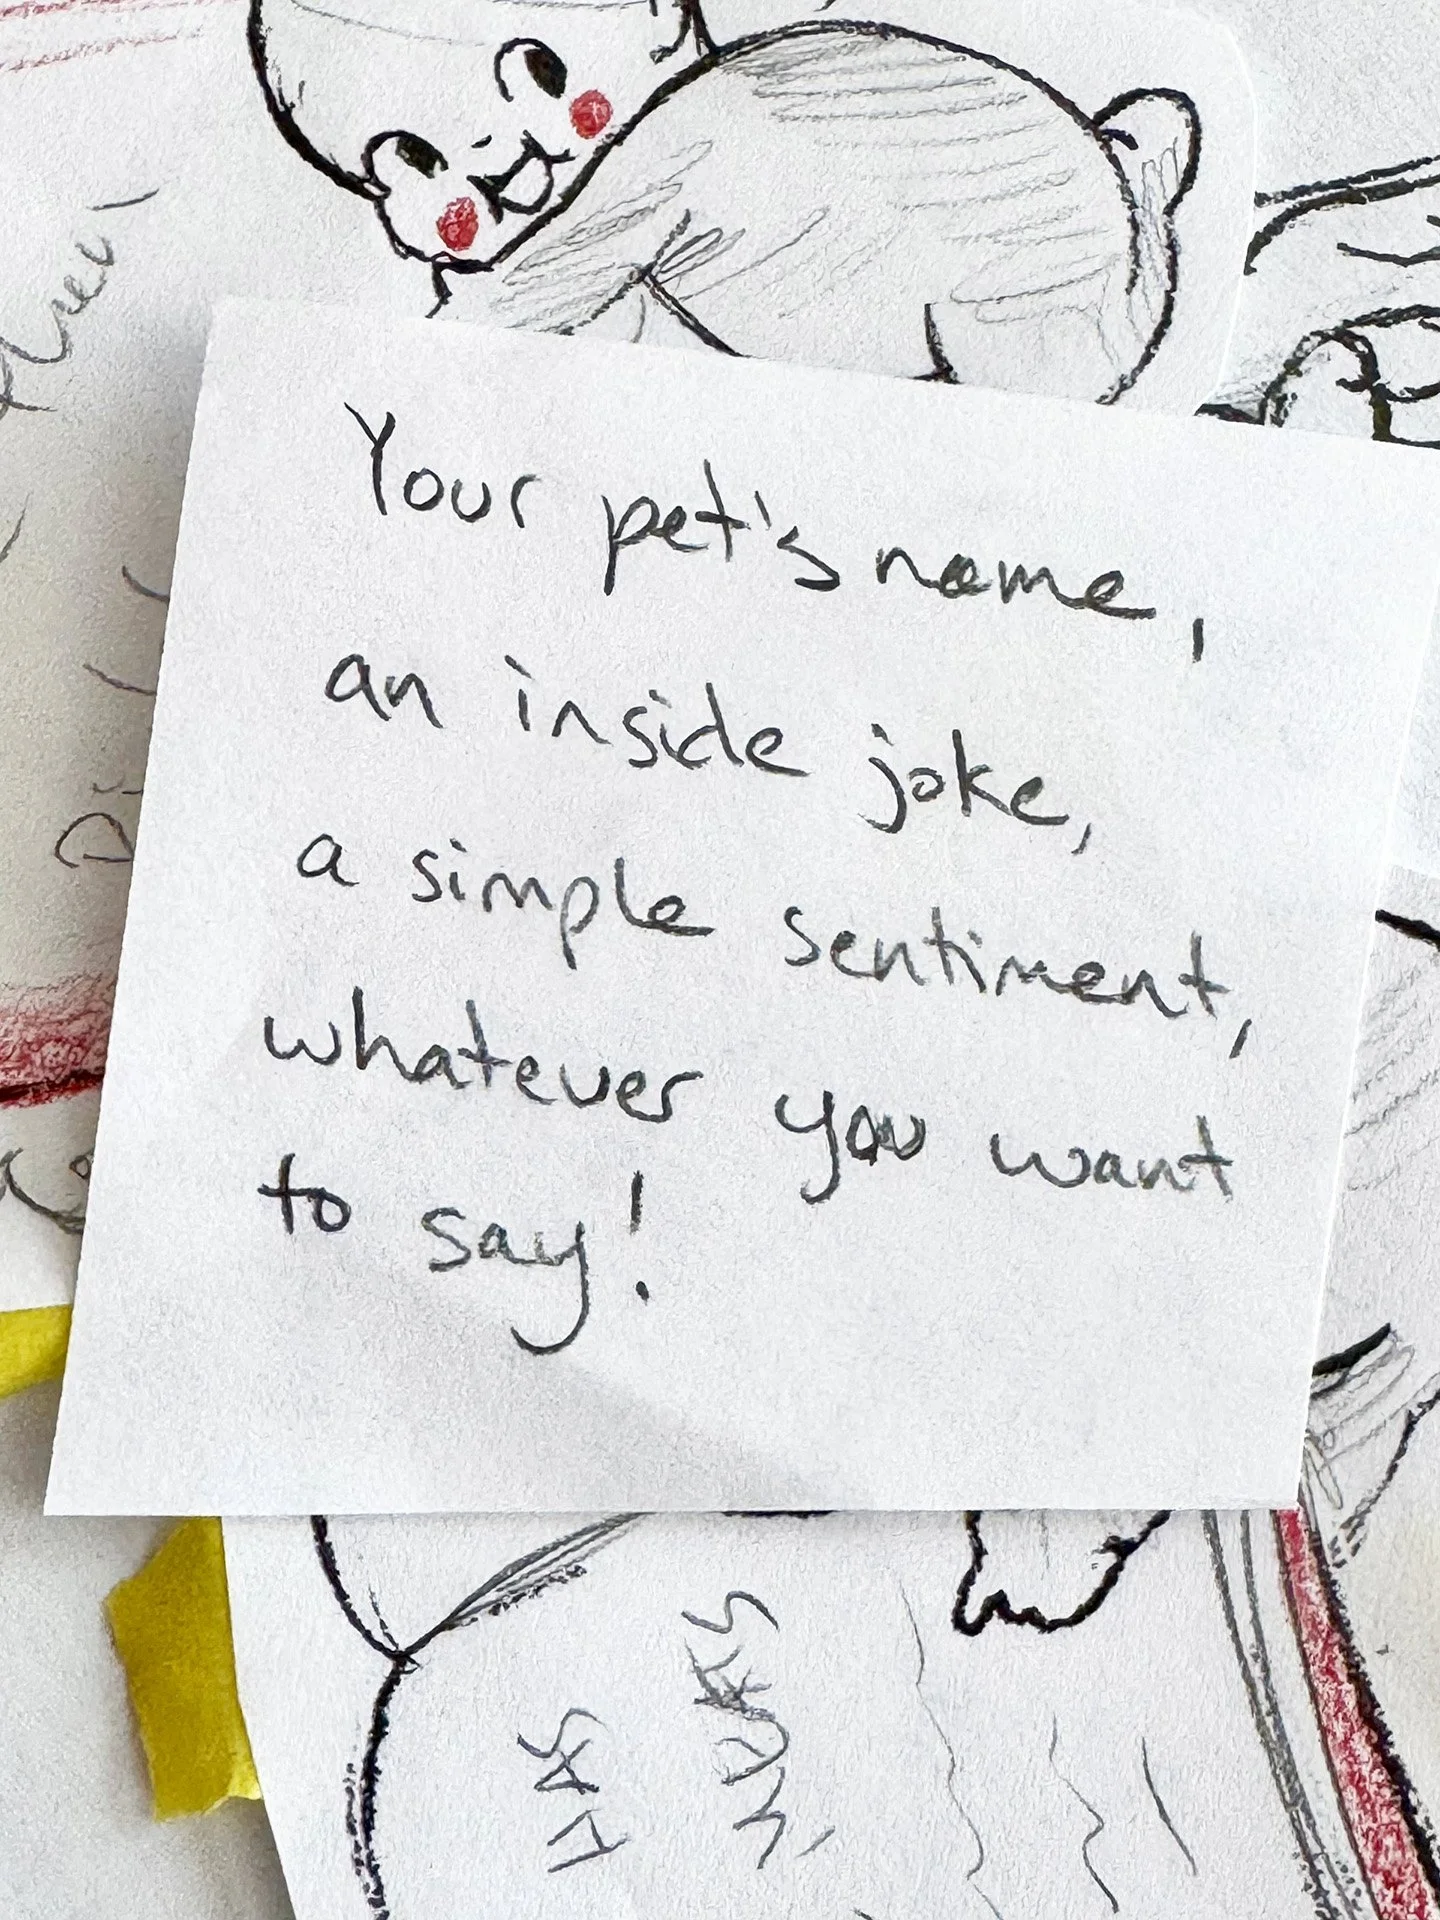 Your pet's name,
an inside joke,
a simple sentiment,
whatever you want
to say!
HAS